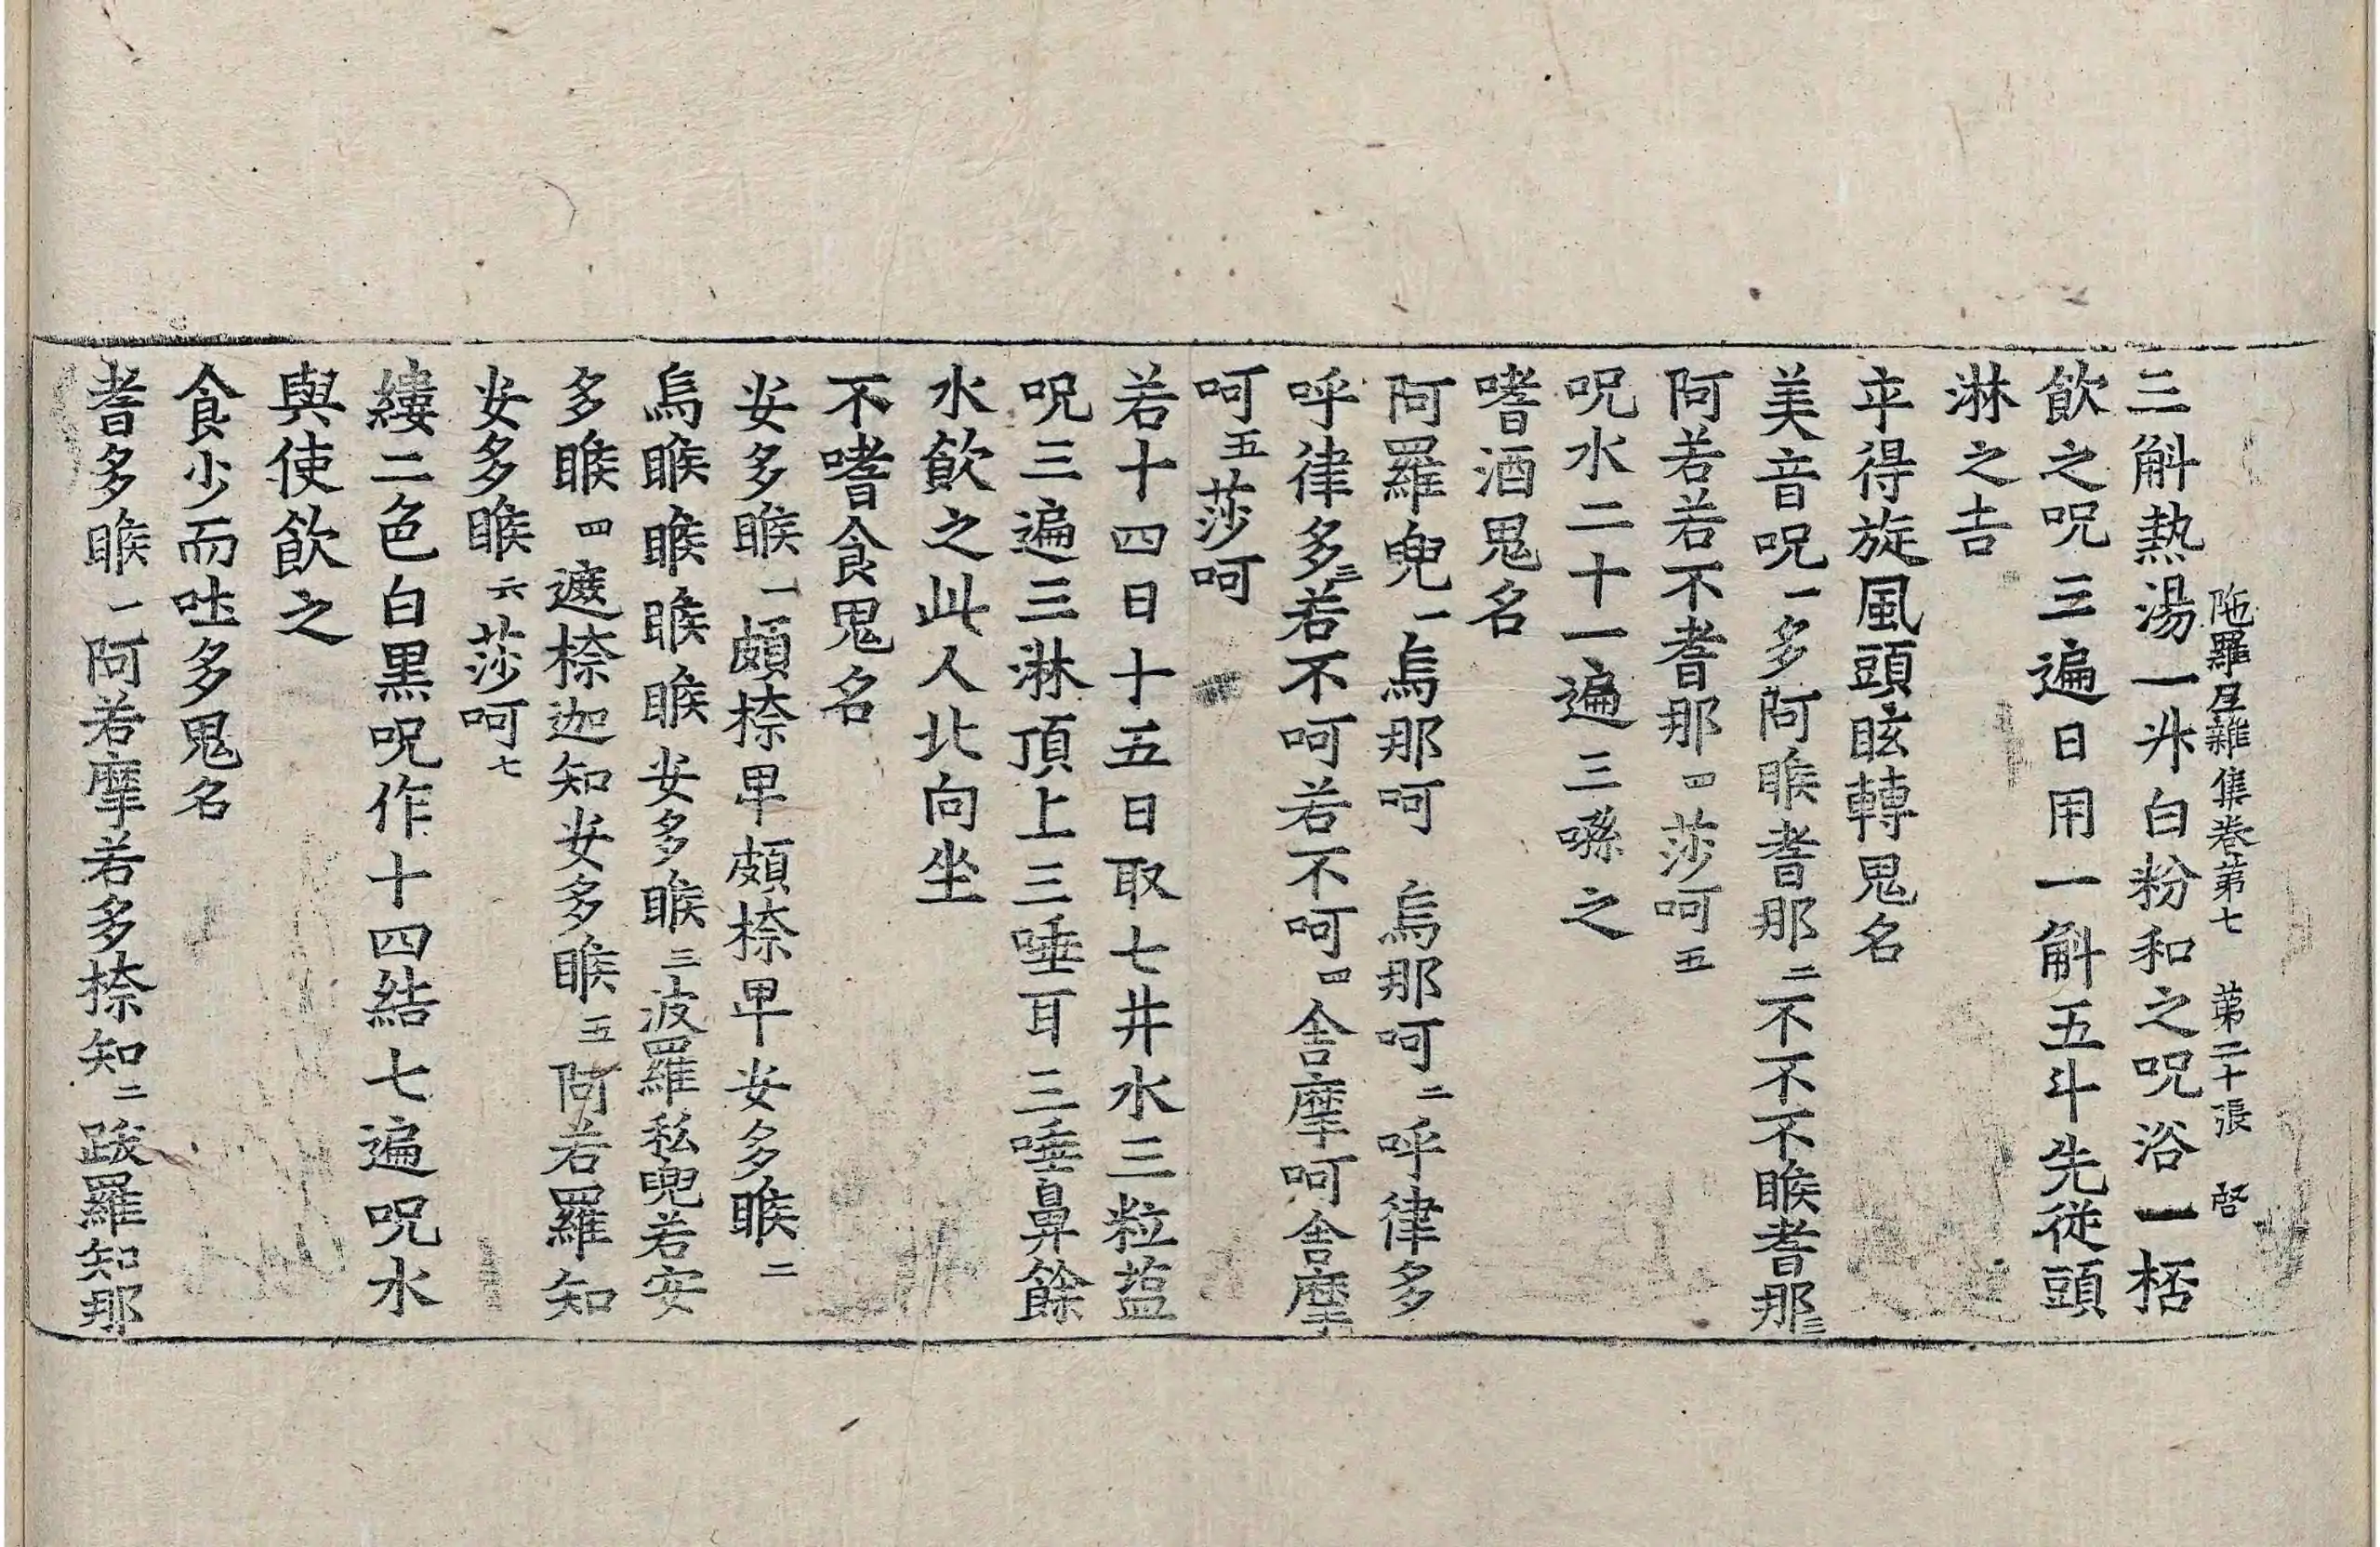 陁羅尼雜集卷第七 第二十張 啓
三斛熱湯一升白粉和之呪浴一栝
飲之呪三遍日用一斛五斗先從頭
淋之吉
卒得旋風頭眩轉鬼名
美音呪一多阿睺耆那二不不不睺耆那三
阿若若不耆那四莎呵五
呪水二十一遍三㗜之
嗜酒鬼名
阿羅兜一烏那呵 烏那呵二呼律多
呼律多三若不呵若不呵四舍摩呵舍摩
呵五莎呵
若十四日十五日取七井水三粒塩
呪三遍三淋頂上三唾耳三唾鼻餘
水飲之此人北向坐
不嗜食鬼名
安多睺一頗捺卑頗捺卑安多睺二
烏睺睺睺睺安多睺三波羅私兜若安
多睺四遮捺迦知安多睺五阿若羅知
安多睺六莎呵七
縷二色白黑呪作十四結七遍呪水
與使飲之
食少而吐多鬼名
耆多睺一阿若摩若多捺知二跋羅知那